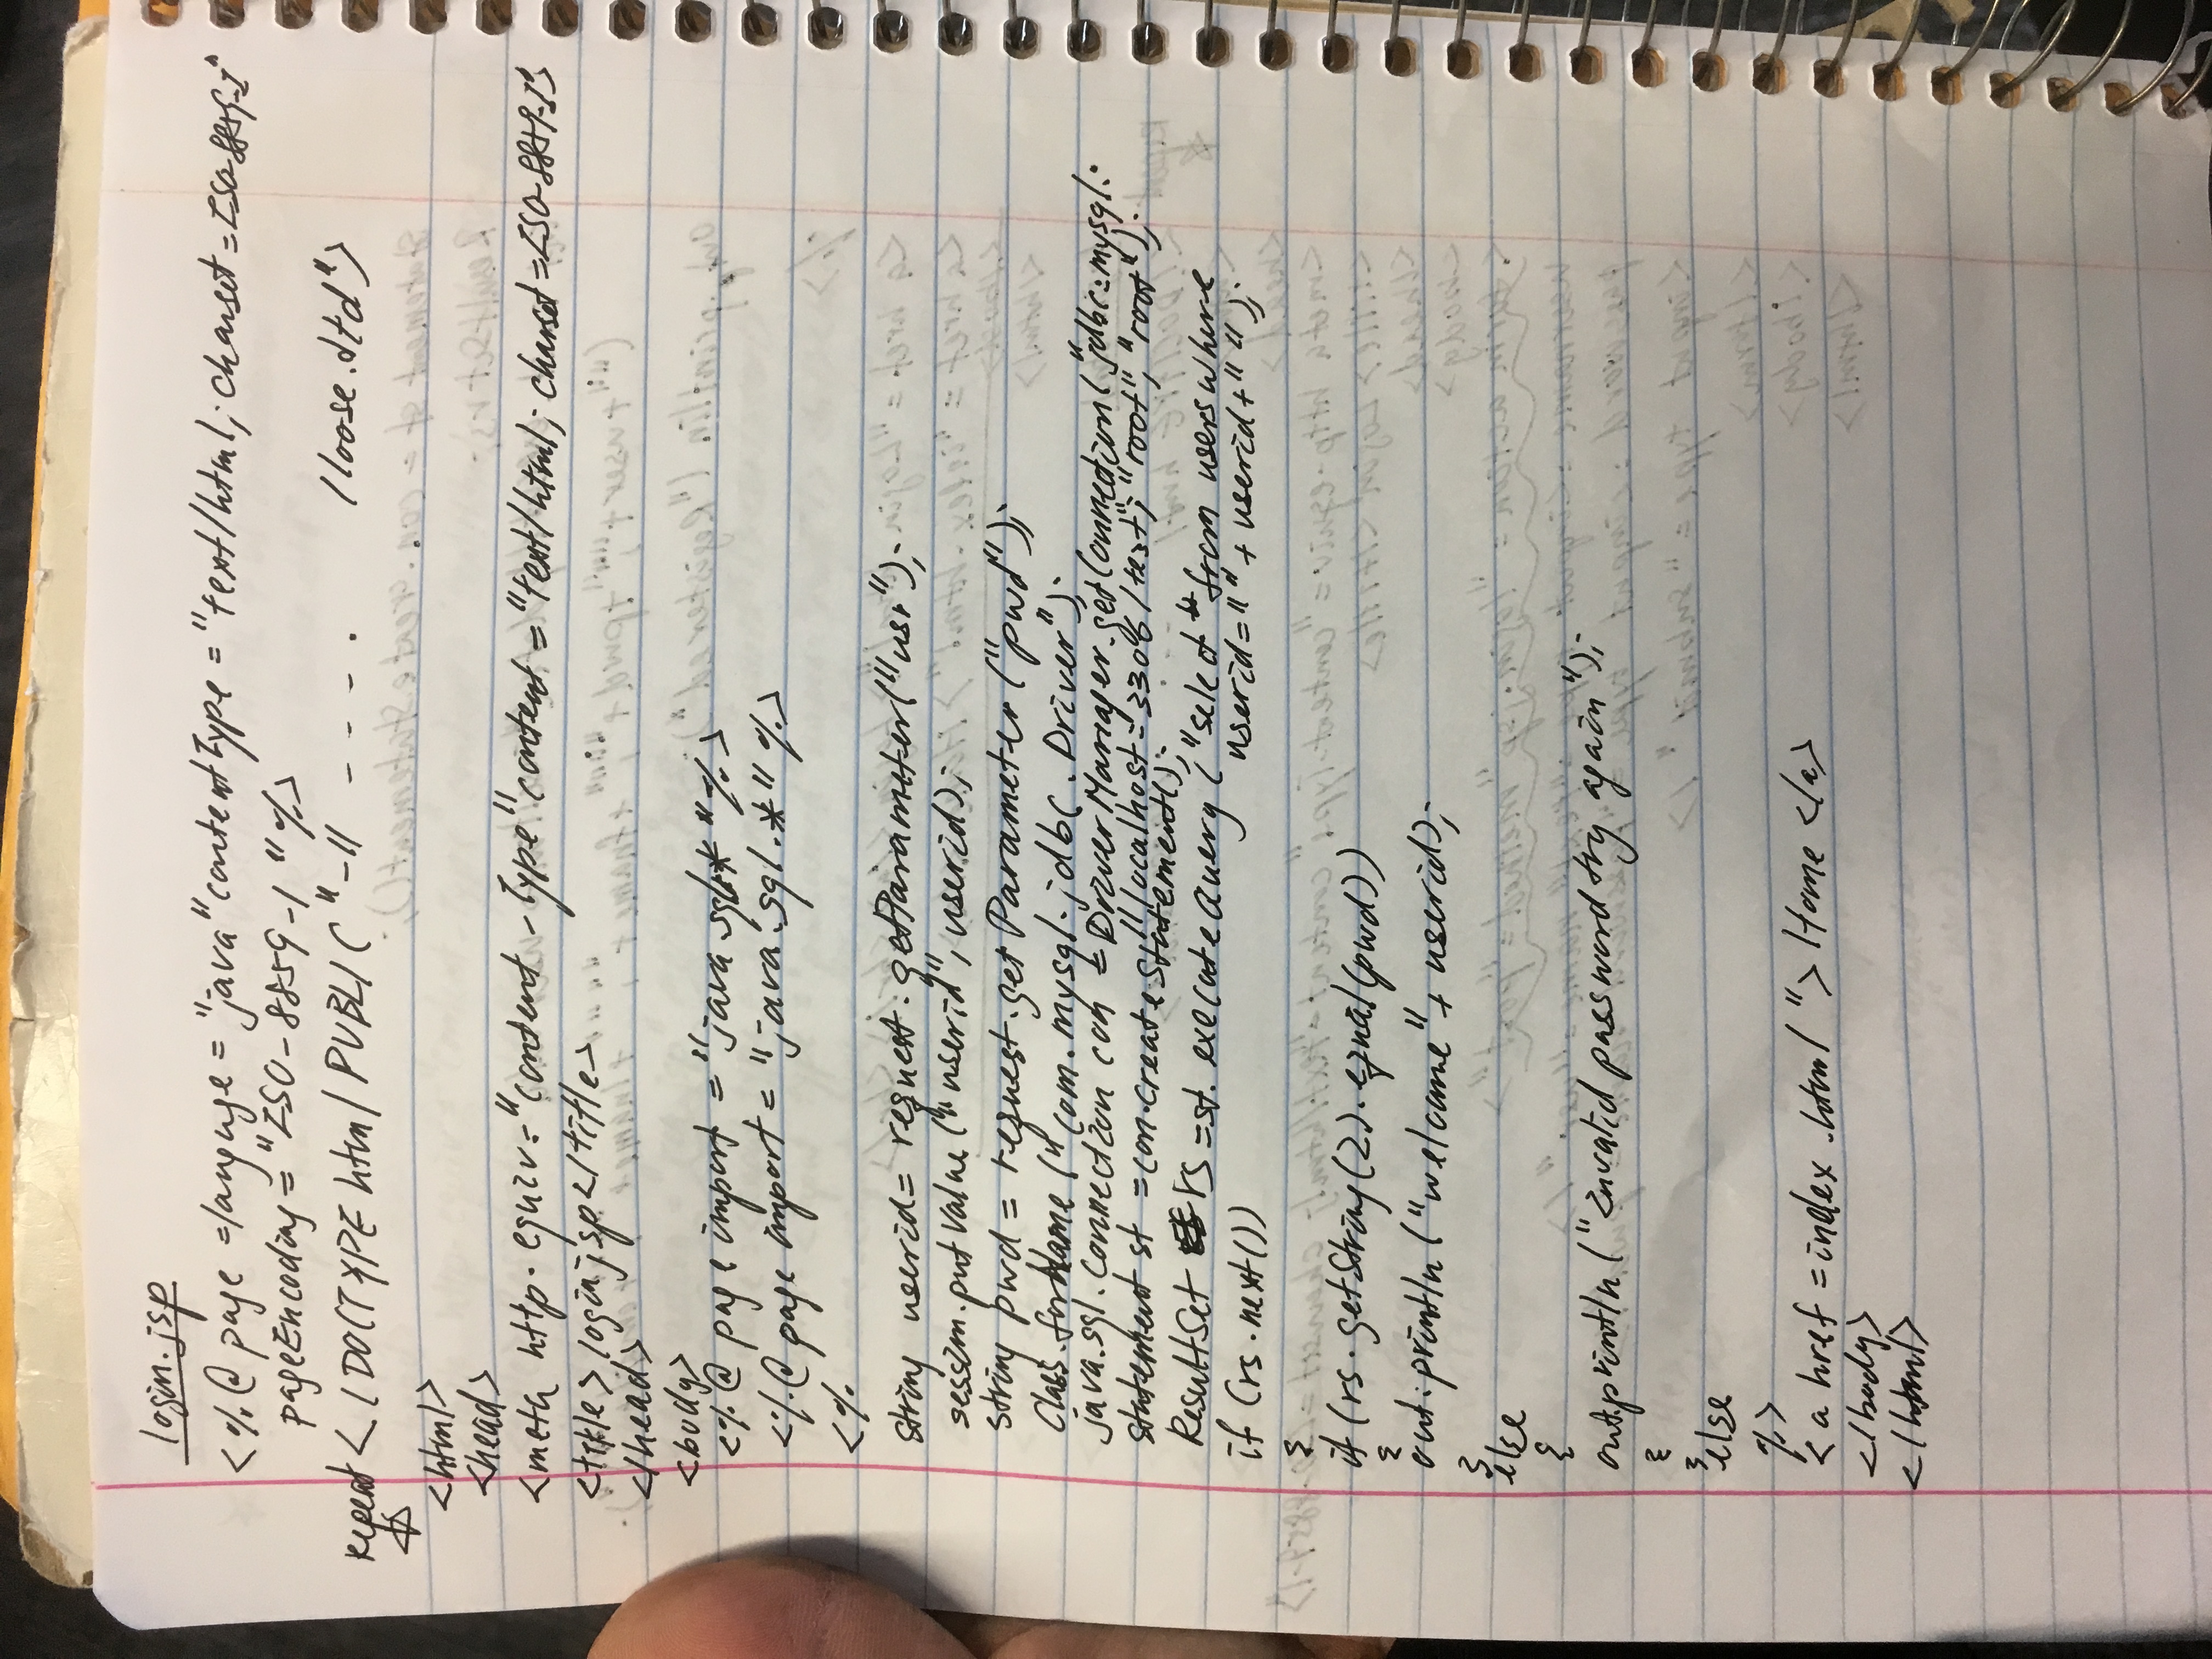 login.jsp
<%@ page =languge = "java" contentType = "text/html; charset=ISO-8859-1"
pageEncoding = "ISO-8859-1" %>
repeat <!DOCTYPE html PUBLIC "-// - - - - . /loose.dtd">
<html>
<head>
<meta http-equiv="content-Type" content = "text/html; charset=ISO-8859-1">
<title>login jsp</title>
</head>
<body>
<%@ page import = "java.sql.*" %>
<%@ page import = "java.sql.*" %>
<%
string userid= request.getParameter("usr");
session.putValue("userid", userid);
string pwd = request.getParameter("pwd");
Class.forName("com.mysql.jdbc.Driver");
java.sql.Connection con = DriverManager.getConnection("jdbc:mysql:
//localhost=3306/test", "root", "root");
statement st =con.createStatement();
ResultSet rs =st.executeQuery("select * from users where
userid=""+ userid+" ");
if (rs.next())
{
if (rs.getString(2).equal(pwd))
{
out.println("welcome"+ userid);
}
else
{
out.println("Invalid password try again");
{
}else
%>
<a href =index.html ">Home</a>
</body>
</html>